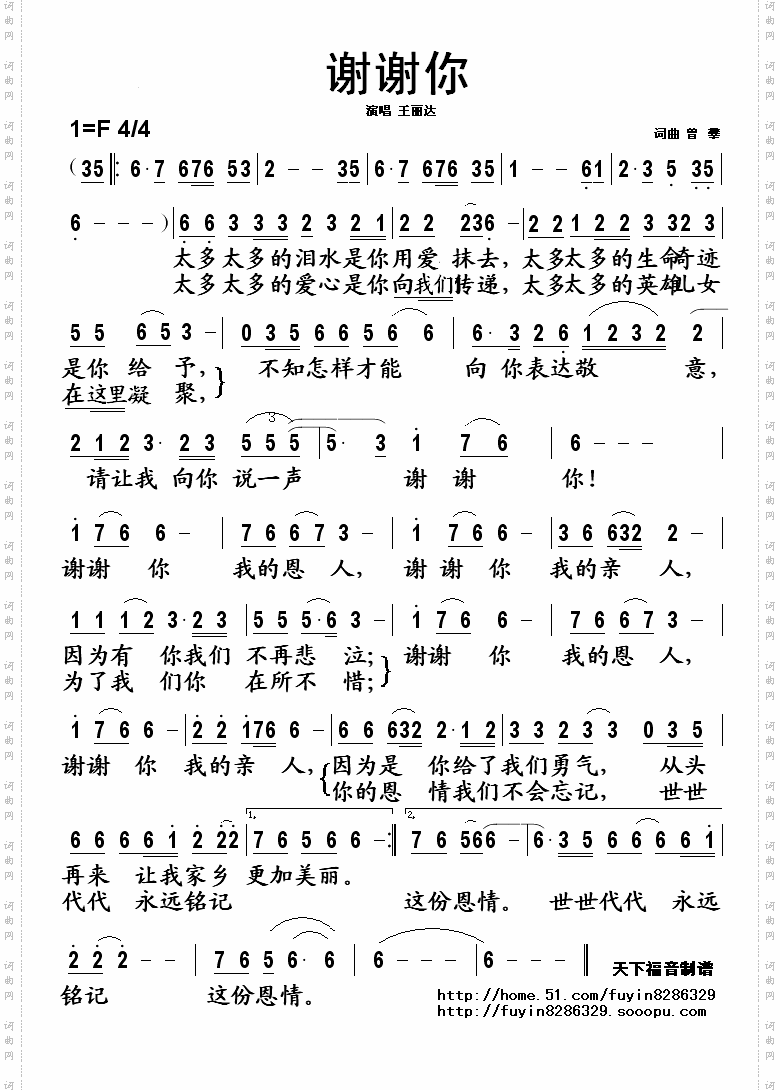 谢谢你
演唱 王丽达
1=F 4/4
词曲 曾 攀
( 35 ‖: 6· 7 676 53 | 2 - - 35 | 6· 7 676 35 | 1 - - 61 | 2· 3 5 35 |
6 - - - ) | 6 6 3 3 3 2 3 2 1 | 2 2 236 - | 2 2 1 2 2 3 323 |
太多太多的泪水是你用爱 抹去，太多太多的生命奇迹
太多太多的爱心是你向我们传递，太多太多的英雄儿女
5 5 6 5 3 - | 0 3 5 6 6 5 6 6 | 6· 3 2 6 1 2 3 2 | 2
是你 给 予， 不知怎样才能 向 你表达敬 意，
在这里凝 聚，
2 1 2 3· 2 3 | 5 5 5 5 | 5· 3 1 7 6 | 6 - - |
3
请让我 向你 说一声 谢 谢 你！
1 7 6 6 - | 7 6 6 7 3 - | 1 7 6 6 - | 3 6 632 2 - |
谢谢 你 我的恩 人， 谢 谢 你 我的亲 人，
1 1 1 2 3· 2 3 | 5 5 5· 6 3 - | 1 7 6 6 - | 7 6 6 7 3 - |
因为有 你我们 不再悲 泣； 谢谢 你 我的恩 人，
为了我 们你 在所不 惜；
1 7 6 6 - | 2 2 176 6 - | 6 6 632 2· 1 2 | 3 3 2 3 3 0 3 5 |
谢谢 你 我的亲 人，因为是 你给了我们勇气， 从头
你的恩 情我们不会忘记， 世世
1. 2.
6 6 6 6 1 2 22 | 7 6 5 6 6 - :‖ 7 6 566 - | 6· 3 5 6 6 6 6 1 |
再来 让我家乡 更加美丽。
代代 永远铭记 这份恩情。 世世代代 永远
2 2 2 - - | 7 6 5 6· 6 | 6 - - | 6 - - ‖
铭记 这份恩情。
天下福音制谱
http://home.51.com/fuyin8286329
http://fuyin8286329.sooopu.com
词曲网